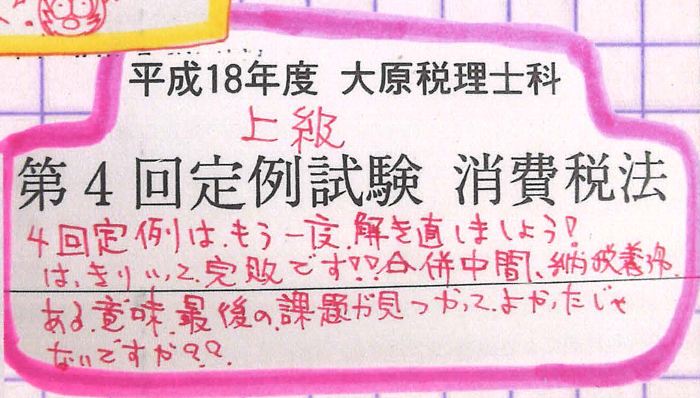 平成18年度 大原税理士科
上級
第4回定例試験 消費税法
4回定例は、もう一度、解き直しましょう!
はっきりいって、完敗です!!合併中間、納税義務、
ある意味、最後の、課題が見つかって、よかったじゃ
ないですか??